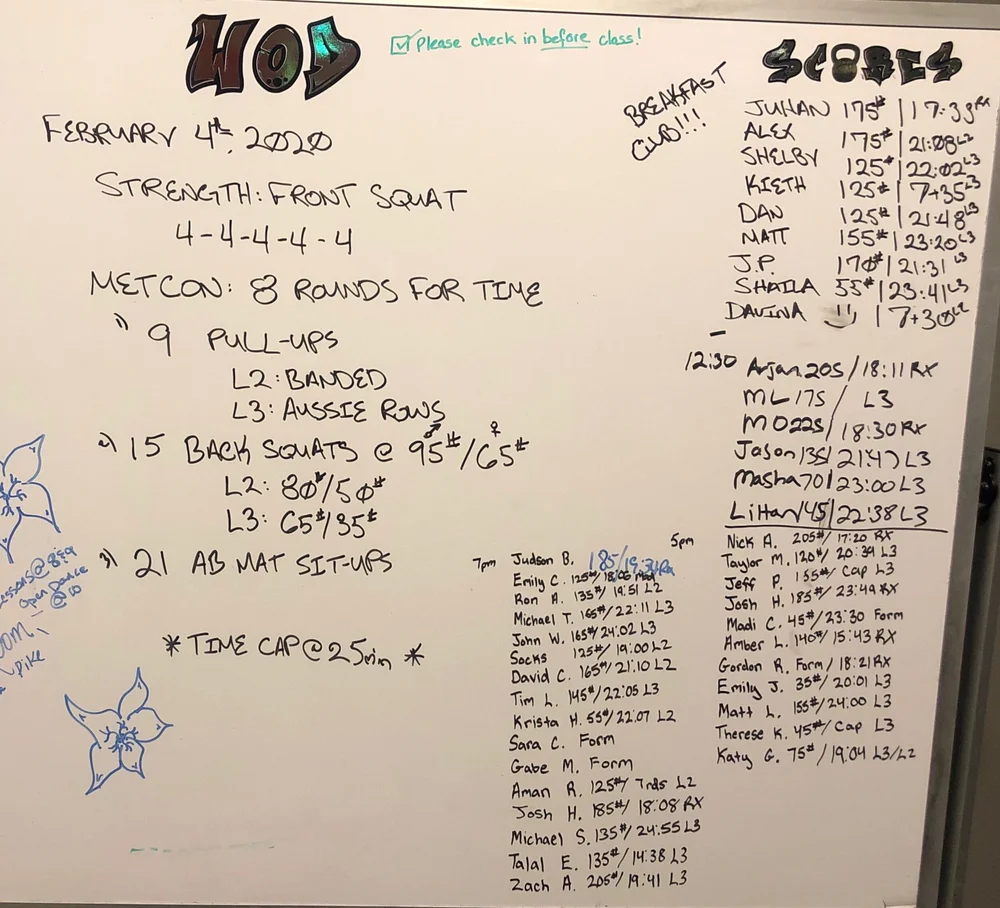 WOD
☑ Please check in before class!
FEBRUARY 4th, 2020
STRENGTH: FRONT SQUAT
4-4-4-4-4
METCON: 8 ROUNDS FOR TIME
1) 9 PULL-UPS
L2: BANDED
L3: AUSSIE ROWS
2) 15 BACK SQUATS @ ♂95#/♀65#
L2: 80#/50#
L3: 65#/35#
3) 21 AB MAT SIT-UPS
* TIME CAP @ 25min *
Open Dance
@10
SCORES
BREAKFAST
CLUB!!!
JUHAN 175# | 17:33 RX
ALEX 175# | 21:08 L2
SHELBY 125# | 22:02 L3
KIETH 125# | 7+35 L3
DAN 125# | 21:48 L3
MATT 155# | 23:20 L3
J.P. 170# | 21:31 L3
SHAILA 55# | 23:41 L3
DAVINA | 7+30 L2
12:30 Arjan 205/18:11 RX
ML 175/ L3
MO 225/18:30 RX
Jason 135/21:47 L3
Masha 70|23:00 L3
145|22:38 L3
5pm
Nick A. 205#/17:20 RX
Taylor M. 120#/20:39 L3
Jeff P. 155#/Cap L3
Josh H. 185#/23:49 RX
Madi C. 45#/23:30 Form
Amber L. 140#/15:43 RX
Gordon R. Form/18:21 RX
Emily J. 35#/20:01 L3
Matt L. 155#/24:00 L3
Therese K. 45#/Cap L3
Katy G. 75#/19:04 L3/L2
7pm
Judson B. 185/19:34 Rx
Emily C. 125#/18:06
Ron A. 135#/19:51 L2
Michael T. 165#/22:11 L3
John W. 165#/24:02 L3
Socks 125#/19:00 L2
David C. 165#/21:10 L2
Tim L. 145#/22:05 L3
Krista H. 55#/22:07 L2
Sara C. Form
Gabe M. Form
Aman R. 125#/7rds L2
Josh H. 185#/18:08 RX
Michael S. 135#/24:55 L3
Talal E. 135#/14:38 L3
Zach A. 205#/19:41 L3